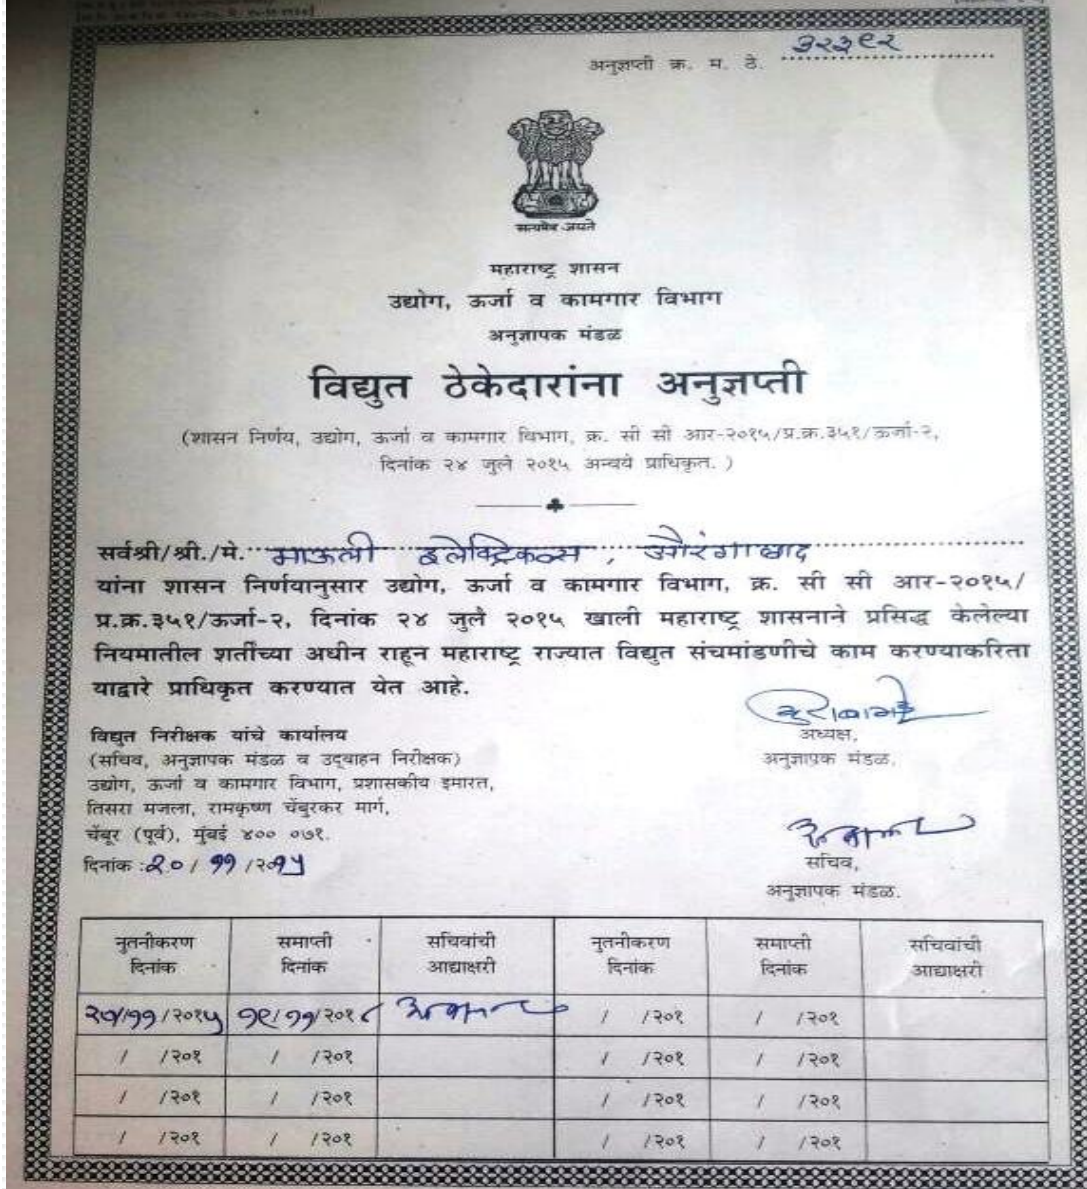 अनुज्ञप्ती क्र. म. ठे. ३२३९२
सत्यमेव जयते
महाराष्ट्र शासन
उद्योग, ऊर्जा व कामगार विभाग
अनुज्ञापक मंडळ
विद्युत ठेकेदारांना अनुज्ञप्ती
(शासन निर्णय, उद्योग, ऊर्जा व कामगार विभाग, क्र. सी सी आर-२०१५/प्र.क्र.३५१/ऊर्जा-२,
दिनांक २४ जुलै २०१५ अन्वये प्राधिकृत. )
सर्वश्री/श्री./मे. माऊली इलेक्ट्रिकल्स, औरंगाबाद
यांना शासन निर्णयानुसार उद्योग, ऊर्जा व कामगार विभाग, क्र. सी सी आर-२०१५/
प्र.क्र.३५१/ऊर्जा-२, दिनांक २४ जुलै २०१५ खाली महाराष्ट्र शासनाने प्रसिद्ध केलेल्या
नियमातील शर्तीच्या अधीन राहून महाराष्ट्र राज्यात विद्युत संचमांडणीचे काम करण्याकरिता
याद्वारे प्राधिकृत करण्यात येत आहे.
विद्युत निरीक्षक यांचे कार्यालय
(सचिव, अनुज्ञापक मंडळ व उद्‌वाहन निरीक्षक)
उद्योग, ऊर्जा व कामगार विभाग, प्रशासकीय इमारत,
तिसरा मजला, रामकृष्ण चेंबुरकर मार्ग,
चेंबूर (पूर्व), मुंबई ४०० ०७१.
दिनांक : २०/११/२०१५
अध्यक्ष,
अनुज्ञापक मंडळ.
सचिव,
अनुज्ञापक मंडळ.
नुतनीकरण दिनांक समाप्ती दिनांक सचिवांची आद्याक्षरी नुतनीकरण दिनांक समाप्ती दिनांक सचिवांची आद्याक्षरी
२०/११/२०१५ १९/११/२०१८ / /२०१ / /२०१
/ /२०१ / /२०१ / /२०१ / /२०१
/ /२०१ / /२०१ / /२०१ / /२०१
/ /२०१ / /२०१ / /२०१ / /२०१